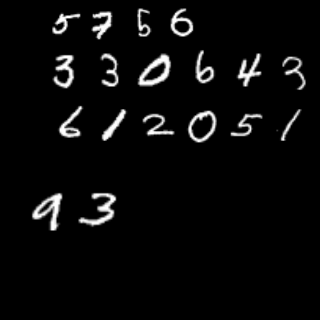 5756
330643
612051
93